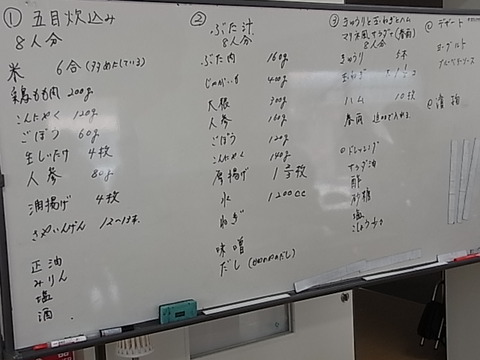 ① 五目炊込み
8人分
米 6合
鶏もも肉 200g
こんにゃく 120g
ごぼう 60g
生しいたけ 4枚
人参 80g
油揚げ 4枚
さやいんげん 12〜13本
正油
みりん
塩
酒
② ぶた汁
8人分
ぶた肉 160g
じゃがいも 400g
大根 300g
人参 160g
ごぼう 120g
こんにゃく 140g
厚揚げ
水 1200cc
ねぎ
味噌
だし
③ きゅうりと玉ねぎとハム
マリネ風サラダ(春雨)
8人分
きゅうり
玉ねぎ
ハム 10枚
春雨
ドレッシング
サラダ油
酢
砂糖
塩
こしょう少々
デザート
ヨーグルト
ブルーベリーソース
漬物